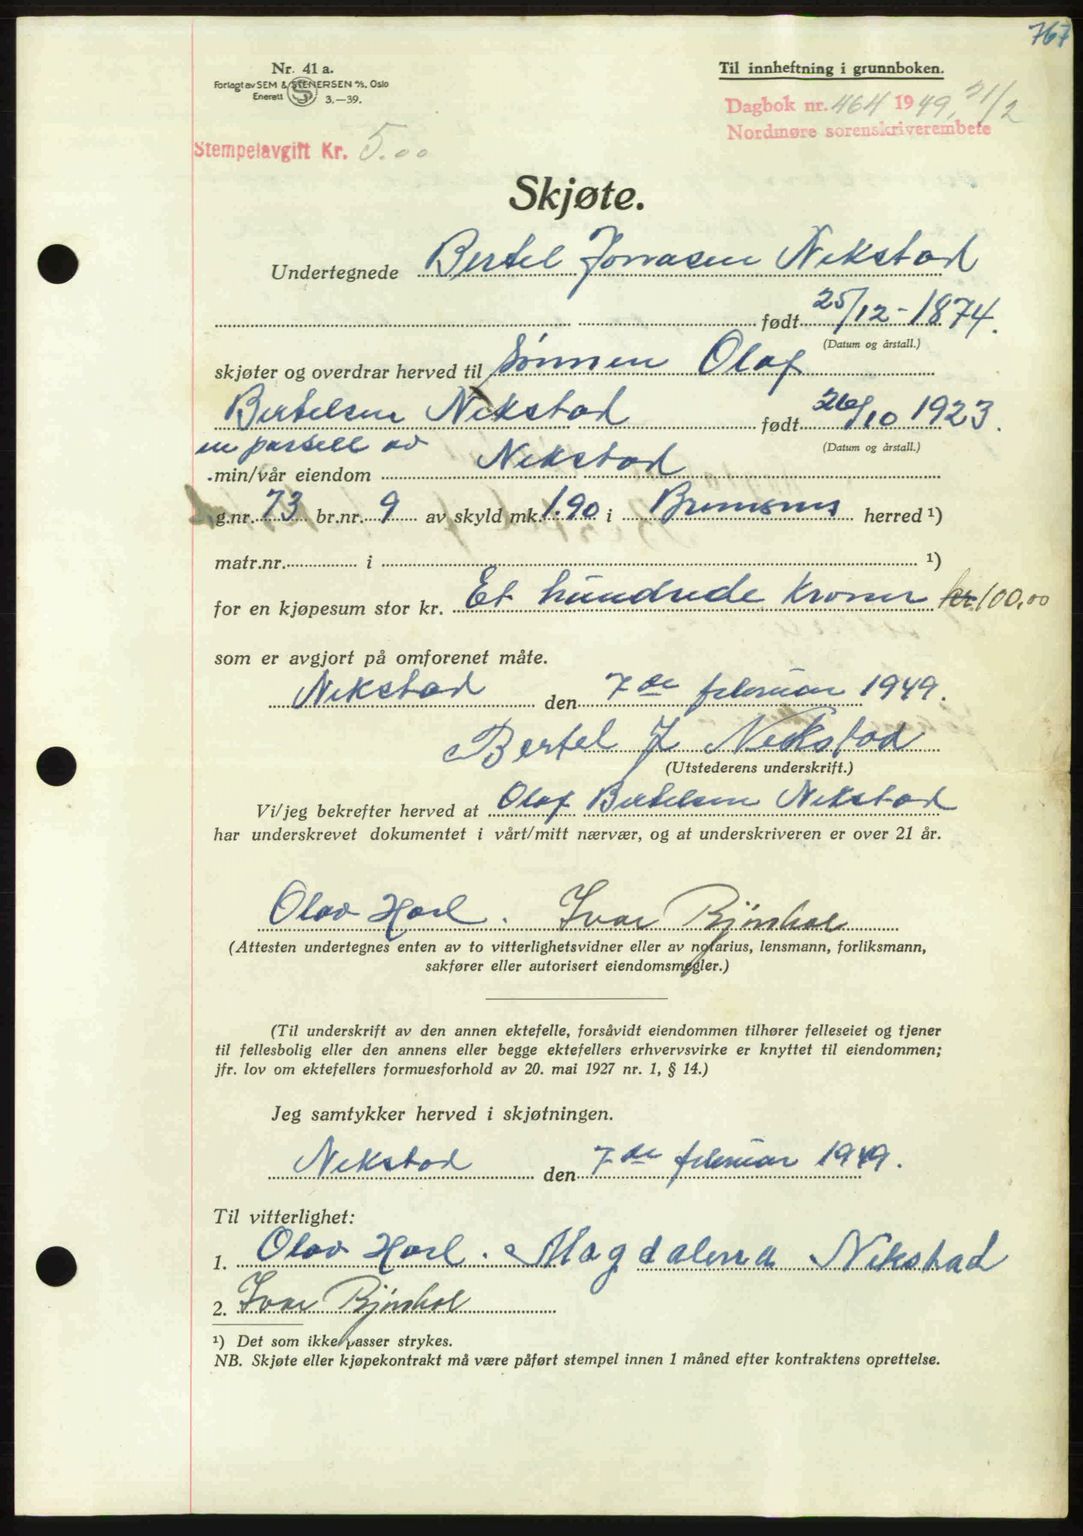 767
Nr. 41 a.
Forlagt av SEM & STENERSEN A/S, Oslo
Enerett S 3.—39.
Til innheftning i grunnboken.
Dagbok nr. 464 1949, 21/2
Nordmøre sorenskriverembete
Stempelavgift Kr. 5.00
Skjøte.
Undertegnede Bertel Jonasen Nekstad
født 25/12-1874.
(Datum og årstall.)
skjøter og overdrar herved til Sønnen Olaf
Bertelsen Nekstad født 26/10 1923.
(Datum og årstall.)
en parsell av
min/vår eiendom Nekstad
g.nr. 73 br.nr. 9 av skyld mk. 1.90 i Bremsnes herred ¹)
matr.nr. i ¹)
for en kjøpesum stor kr. Et hundrede kroner kr. 100,00
som er avgjort på omforenet måte.
Nekstad den 7de februar 1949.
Bertel J Nekstad
(Utstederens underskrift.)
Vi/jeg bekrefter herved at Olaf Bertelsen Nekstad
har underskrevet dokumentet i vårt/mitt nærvær, og at underskriveren er over 21 år.
Olav Hoel. Ivar Bjørshol
(Attesten undertegnes enten av to vitterlighetsvidner eller av notarius, lensmann, forliksmann,
sakfører eller autorisert eiendomsmegler.)
(Til underskrift av den annen ektefelle, forsåvidt eiendommen tilhører felleseiet og tjener
til fellesbolig eller den annens eller begge ektefellers erhvervsvirke er knyttet til eiendommen;
jfr. lov om ektefellers formuesforhold av 20. mai 1927 nr. 1, § 14.)
Jeg samtykker herved i skjøtningen.
Nekstad den 7de februar 1949.
Til vitterlighet:
1. Olav Hoel. Magdalena Nekstad
2. Ivar Bjørshol
¹) Det som ikke passer strykes.
NB. Skjøte eller kjøpekontrakt må være påført stempel innen 1 måned efter kontraktens oprettelse.